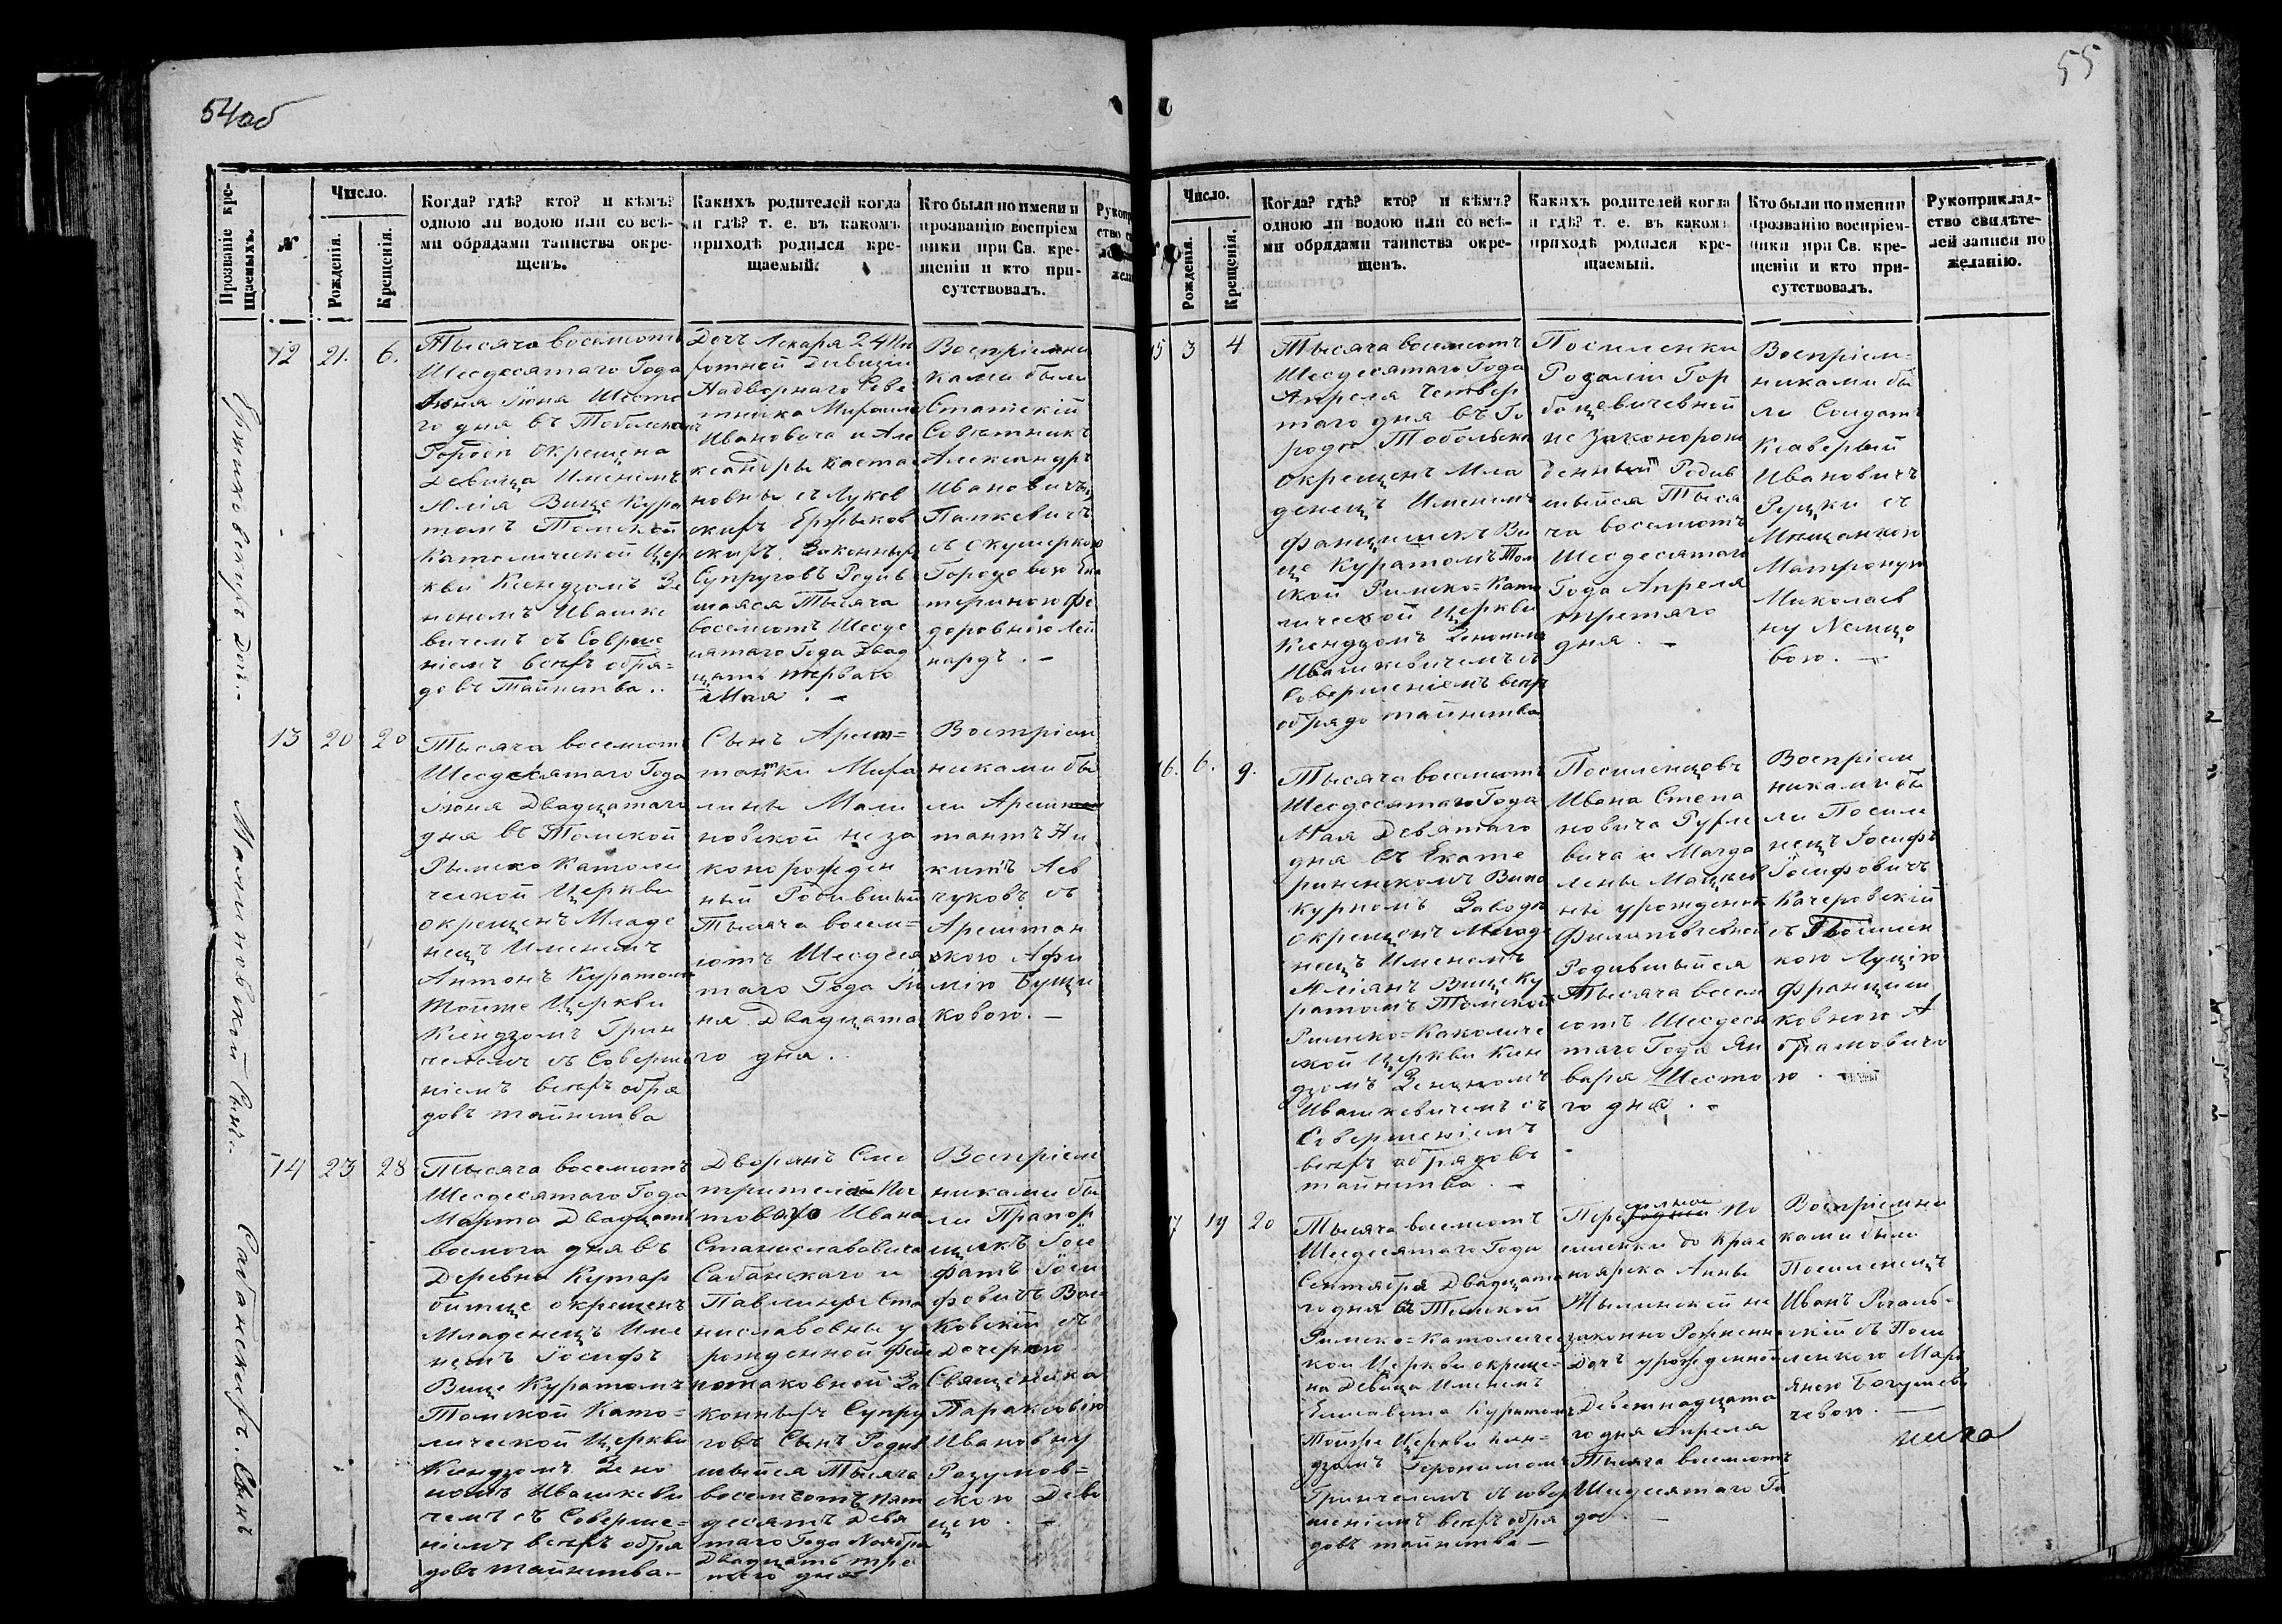 54об
55
Прозваніе кре-
щаемыхъ.
№
Число.
Рожденія.
Крещенія.
Когда? гдѣ? кто? и кѣмъ?
одною ли водою или со всѣ-
ми обрядами таинства окре-
щенъ.
Какихъ родителей когда
и гдѣ? т. е. въ какомъ
приходѣ родился кре-
щаемый.
Кто были по имени и
прозванію воспріем
ники при Св. кре-
щеніи и кто при-
сутствовалъ.
12
21.
6.
Тысяча восемсотъ
Шесдесятаго Года
Іюня Шесто
го дня въ
окрещена
Девица Именемъ
Юлія Вице Кура
томъ Томской
Католической Цер
кви Ксендзомъ Зе
нономъ Ивашке
вичемъ съ Соверше
ніемъ всехъ обря=
довъ Тайнства..
Дочъ Лекаря 24
Дивизіи
Надворнаго Сове
тника
Ивановича и Але
ксандры
новны
Законныхъ
Супруговъ Родив
шаяся Тысяча
восемсотъ Шесде
сятаго Года Двад
цать перваго
Мая . –
Воспріемни
ками были
Статскій
Советникъ
Александръ
Ивановичъ
съ Акушеркою
Городовою Ека
териною Фе
доровною Лей
нардъ . –
13
20
20
Тысяча восемсотъ
Шесдесятаго Года
Іюня Двадцатаго
дня въ Томской
Римско Католи
ческой Церкви
окрещенъ Младе
нецъ Именемъ
Антонъ Куратомъ
Тойже Церкви
Ксендзомъ Грин
целемъ съ Соверше
ніемъ всехъ обря
довъ тайнства
Сынъ Арест=
тантки Миха
лины Мали
новской неза
конорожден
ный Родившый
Тысяча восем=
сотъ Шесдеся
таго Года Ію
ня Двадцата
го дня . .
Воспріем
никами бы
ли
тантъ Ни
китъ Лев
чуковъ съ
Арештан
скою Афи
міею
ковою. –
14
23
28
Тысяча восемсотъ
Шесдесятаго Года
Марта Двадцать
восмого дня въ
Деревни
окрещенъ
Младенецъ Име
немъ Іосифъ
Вице Куратомъ
Томской Като=
лической Церкви
Ксендзомъ Зено
номъ Ивашкеви
чемъ съ Соверше=
ніемъ всехъ обря
довъ тайнства –
Дворянъ Смо
трителя
Ивана
Станиславовича
Сабанскаго и
Павлины Ста
ниславовны у
рожденной
За
конныхъ Супру
говъ Сынъ Родив
шыйся Тысяча
восемсотъ пят
десятъ Девя
таго Года Ноября
Двадцать тре
таго дня
Воспріем
никами бы
ли Прапор
щикъ Іоса
фатъ Іоси
фовичъ
съ
Дочерью
Священника
Параксовію
Ивановну
Разумов=
скою Деви
цею . –
Малиновскій Сынъ.
Сабанскихъ. Сынъ
Число.
Рожденія.
Крещенія.
Когда? гдѣ? кто? и кѣмъ?
одною ли водою или со всѣ-
ми обрядами таинства окре-
щенъ.
Какихъ родителей когда
и гдѣ? т. е. въ какомъ
приходѣ родился кре-
щаемый.
Кто были по имени и
прозванію воспріем-
ники при Св. кре-
щеніи и кто при-
сутствовалъ.
Рукоприклад-
ство свидѣте-
лей записи по
желанію.
15
3
4
Тысяча восемсотъ
Шесдесятаго Года
Апреля Четвер
таго дня въ Го
роде Тобольске
окрещенъ Мла
денецъ Именемъ
Францишекъ Ви
це Куратомъ Том
ской Римско=Като
лической Церкви
Ксендзомъ Зенономъ
Ивашкевичемъ съ
Совершеніемъ всехъ
обрядо тайнства
Посиленки
Розалии Гор
бацевичевной
не Законорож
денный Родив
шыйся Тыся
ча восемсотъ
Шесдесятаго
Года Апреля
третяго
дня . –
Воспріем=
никами бы
ли Солдатъ
Ксаверый
Ивановичъ
Руцки съ
Мещанкою
Матроную
Николаев
ну Немцо
вою. –
16.
6.
9.
Тысяча восемсотъ
Шесдесятаго Года
Мая Девятаго
дня въ Екате
рининскомъ Вино
курномъ Заводе
окрещенъ Младе
нецъ Именемъ
Юліянъ Вице Ку
ратомъ Томской
Римско=Католиче
ской Церкви Ксен
дзомъ Зенономъ
Ивашкевичемъ съ
Совершеніемъ
всехъ обрядовъ
тайнства. –
Посиленцовъ
Ивана Степа
новича
вича и Магда
лены
ны урожденной
Родившыйся
Тысяча восем
сотъ Шесдеся
таго Года Ян
варя Шесто
го дня . –
Воспріем
никами бы
ли Посили
нецъ Іосифъ
Іосифовичъ
Качеровскій
съ Посилен
кою Луцію
Францишк
ковною А
брамовичо
ю . –
17
19
20
Тысяча восемсотъ
Шесдесятаго Года
Сентября Двадцата
го дня въ Томской
Римско=Католичес
кой Церкви окреще=
на Девица Именемъ
Елисавета Куратомъ
Тойже Церкви Ксен=
дзомъ Іеронимомъ
Гринцелемъ съ совер
шеніемъ всехъ обря
довъ тайнства –
По
силенки до Крас
ноярска Анны
не
законно Рожденн
Дочъ урожденной
Девятнадцата
го дня Апреля
Тысяча восемсотъ
Шесдесятаго Го
да . –
Воспріемни
ками были
Посиленецъ
Иванъ
съ Поси
ленкою Мари
яною Богушеви
чевою. –